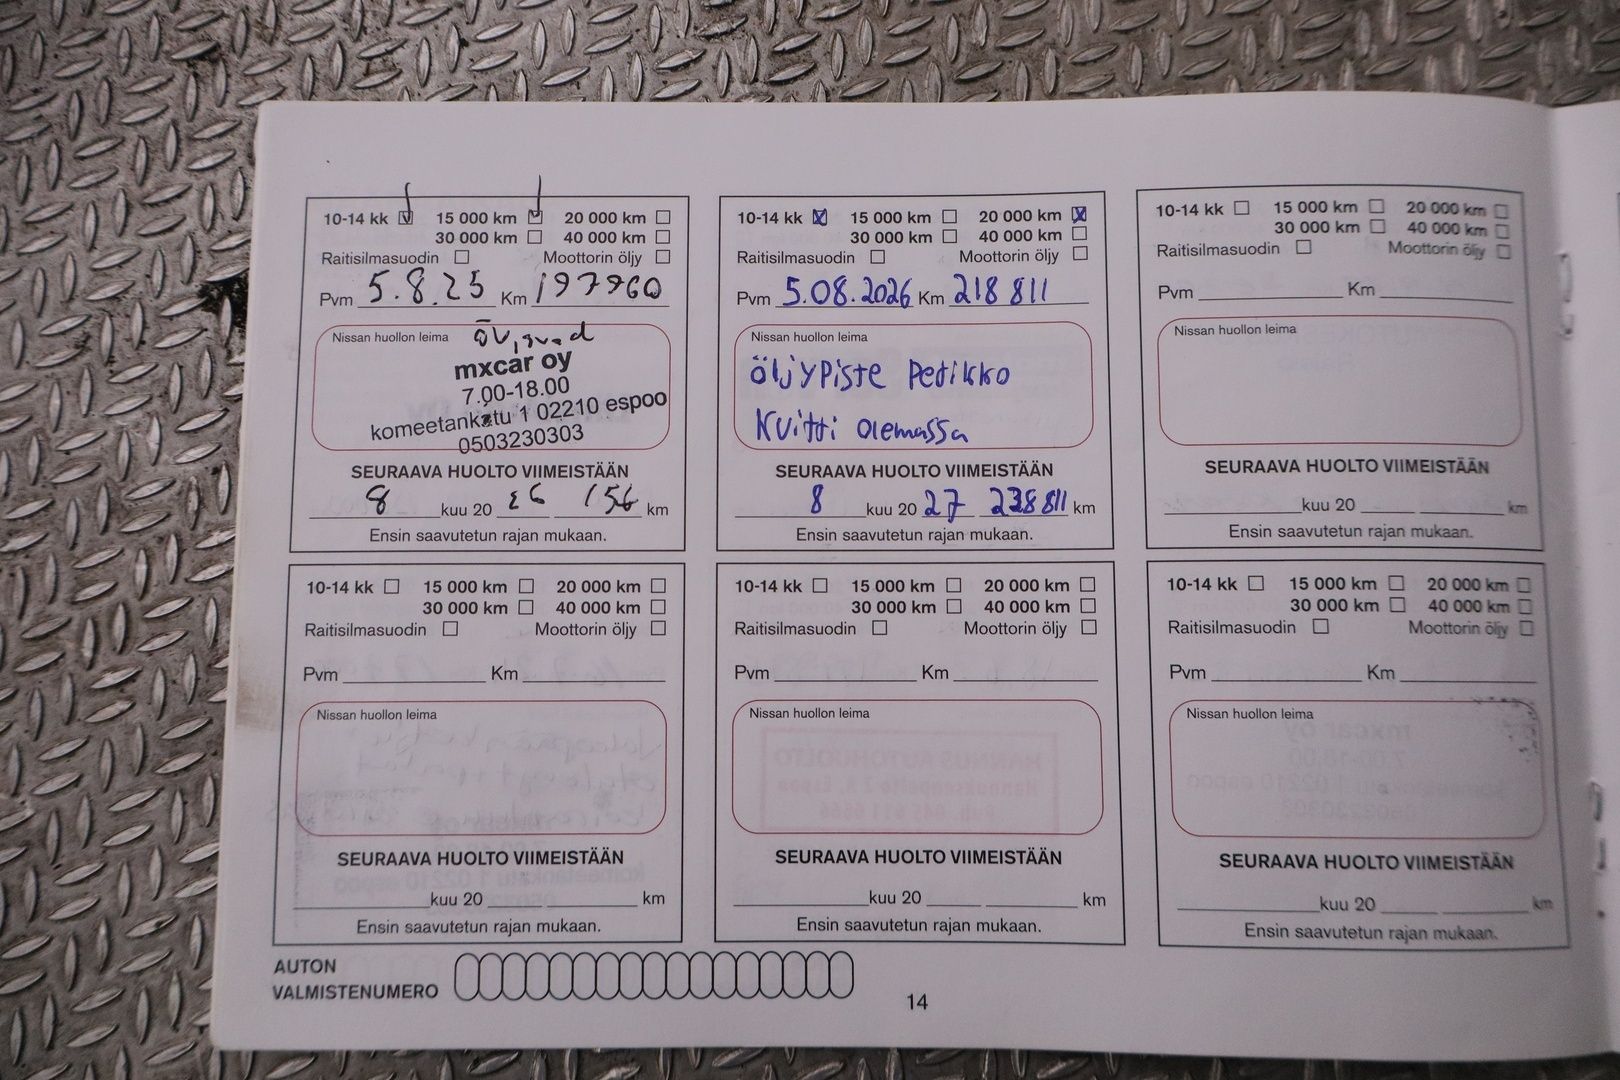 10-14 kk 15 000 km 20 000 km
30 000 km 40 000 km
Raitisilmasuodin Moottorin öljy
Pvm 5.8.25 Km 197960
Nissan huollon leima
mxcar oy
7.00-18.00
komeetankatu 1 02210 espoo
0503230303
SEURAAVA HUOLTO VIIMEISTÄÄN
8 kuu 20 26 156 km
Ensin saavutetun rajan mukaan.
10-14 kk 15 000 km 20 000 km
30 000 km 40 000 km
Raitisilmasuodin Moottorin öljy
Pvm 5.08.2026 Km 218 811
Nissan huollon leima
öljypiste Petikko
Kuitti olemassa
SEURAAVA HUOLTO VIIMEISTÄÄN
8 kuu 20 27 238 811 km
Ensin saavutetun rajan mukaan.
10-14 kk 15 000 km 20 000 km
30 000 km 40 000 km
Raitisilmasuodin Moottorin öljy
Pvm Km
Nissan huollon leima
SEURAAVA HUOLTO VIIMEISTÄÄN
kuu 20 km
Ensin saavutetun rajan mukaan.
10-14 kk 15 000 km 20 000 km
30 000 km 40 000 km
Raitisilmasuodin Moottorin öljy
Pvm Km
Nissan huollon leima
SEURAAVA HUOLTO VIIMEISTÄÄN
kuu 20 km
Ensin saavutetun rajan mukaan.
10-14 kk 15 000 km 20 000 km
30 000 km 40 000 km
Raitisilmasuodin Moottorin öljy
Pvm Km
Nissan huollon leima
SEURAAVA HUOLTO VIIMEISTÄÄN
kuu 20 km
Ensin saavutetun rajan mukaan.
10-14 kk 15 000 km 20 000 km
30 000 km 40 000 km
Raitisilmasuodin Moottorin öljy
Pvm Km
Nissan huollon leima
SEURAAVA HUOLTO VIIMEISTÄÄN
kuu 20 km
Ensin saavutetun rajan mukaan.
AUTON
VALMISTENUMERO
14